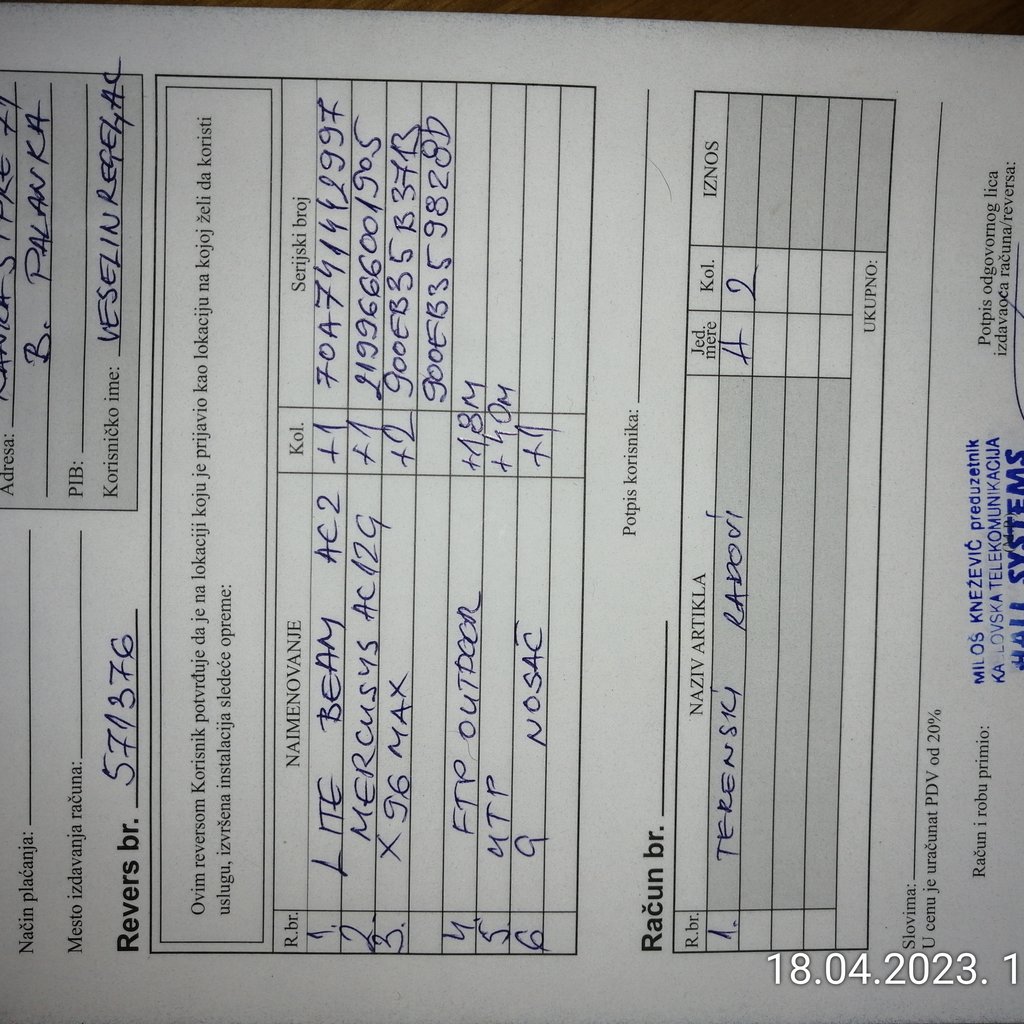 Način plaćanja:
Mesto izdavanja računa:
Adresa:
B. PALANKA
PIB:
Korisničko ime: VESELINREPEJAC
Revers br. 571376
Ovim reversom Korisnik potvrđuje da je na lokaciji koju je prijavio kao lokaciju na kojoj želi da koristi
uslugu, izvršena instalacija sledeće opreme:
R.br. NAIMENOVANJE Kol. Serijski broj
1. LITE BEAM AC2 +1 70A741442997
2. MERCUSYS AC12G +1 2199666001905
3. X96 MAX +2 900EB35B37B
900EB359828D
4. FTP OUTDOOR +18M
5. UTP +40M
6 G NOSAČ +1
Potpis korisnika:
Račun br.
R.br. NAZIV ARTIKLA Jed. mere Kol. IZNOS
1. TERENSKI RADOVI H 2
UKUPNO:
Slovima:
U cenu je uračunat PDV od 20%
Račun i robu primio:
Potpis odgovornog lica
izdavaoca računa/reversa:
MILOŠ KNEŽEVIĆ preduzetnik
KA LOVSKA TELEKOMUNIKACIJA
HALL SYSTEMS
18.04.2023. 1